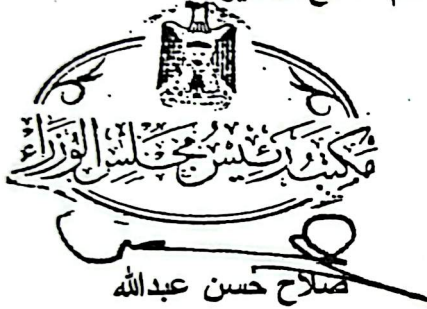 مكتب رئيس مجلس الوزراء
صلاح حسن عبدالله